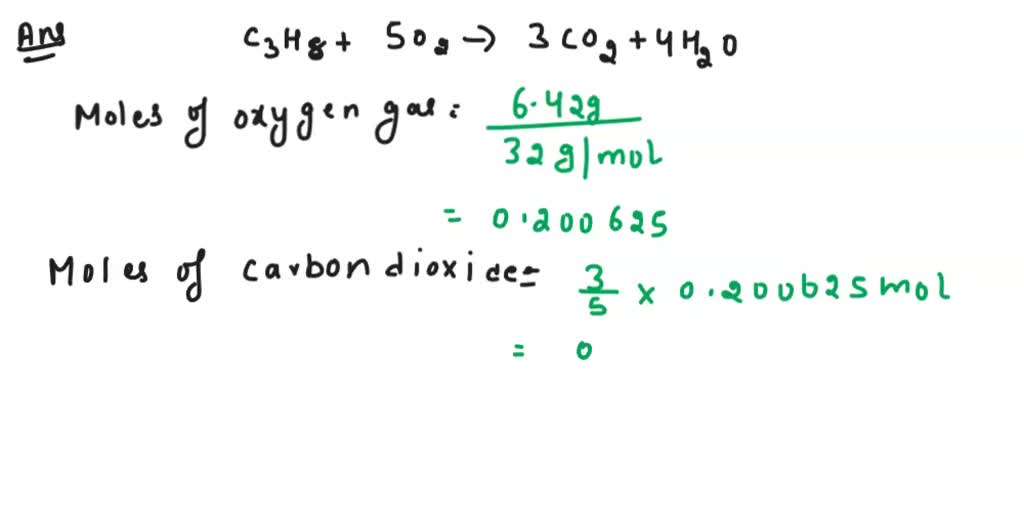 Ans
C₃H₈ + 5O₂ → 3CO₂ + 4H₂O
Moles of oxygen gas = 6.42g / 32g|mol
= 0.200625
Moles of carbondioxide = 3/5 × 0.200625 mol
= 0